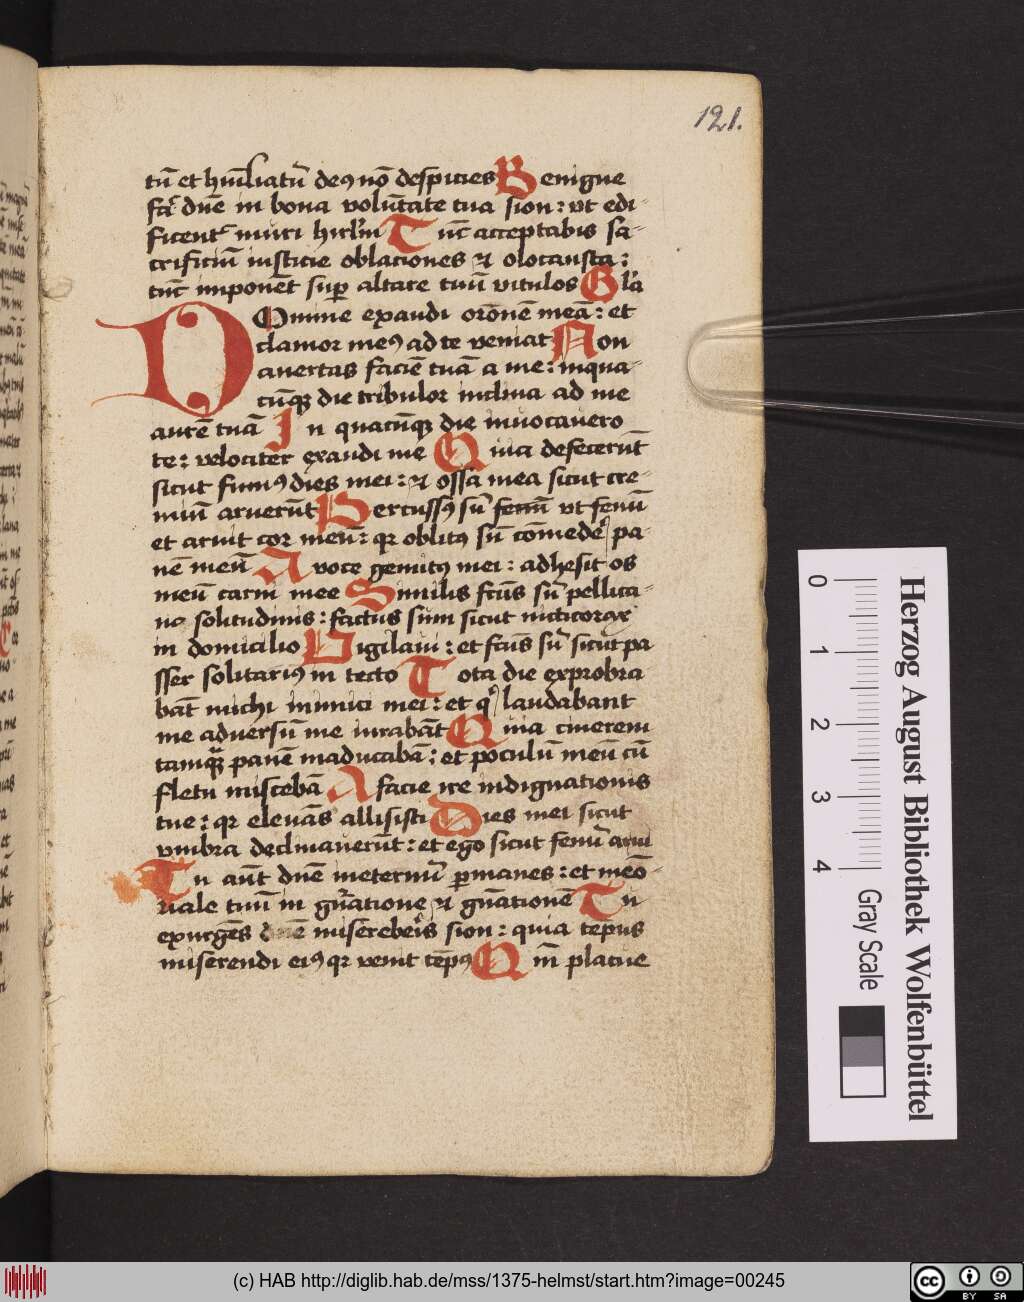 121.
tū et hūiliatū deꝯ nō despicies Benigne
fac̄ dn̄e in bona volūtate tua sion: vt edi-
ficent᷑ muri hirl̄m Tūc acceptabis sa-
crificiū iusticie oblaciones ⁊ olocausta:
tūc imponēt suꝑ altare tuū vitulos Glā
DOmine exaudi orōnē meā: et
clamor meꝯ ad te veniat Non
auertas faciē tuā a me: inqua-
cūqꝫ die tribulor inclina ad me
aurē tuā In quacūqꝫ die inuocauero
te: velociter exaudi me Quia defecerūt
sicut fumꝯ dies mei: ⁊ ossa mea sicut cre-
miū aruerūt Percussꝯ sū fenū vt fenū
et aruit cor meū: qꝛ oblitꝯ sū cōmedeē pa-
nē meū A voce gemitꝯ mei: adhesit os
meū carni mee Similis fc̄us sū pellica-
no solitudinis: factus sum sicut nicticorax
in domicilio Vigilaui: et fc̄us sū sicut pa
sser solitariꝯ in tecto Tota die exprobra
bāt michi inimici mei: et qⁱ laudabant
me aduersū me iurabāt Quia cinerem
tamqꝫ panē māducabā: et poculū meū cū
fletu miscebā A facie ire indignationis
tue: qꝛ eleuās allisisti Dies mei sicut
vmbra declinauerūt: et ego sicut fenū arui
Tu aūt dn̄e ineternū ꝑmanes: et meō-
riale tuū in gn̄atione ⁊ gn̄ationē Tu
exurgēs dn̄e misereberis sion: quia tēpus
miserendi eiꝯ qꝛ venit tēpꝯ Qm̄ placue
0 1 2 3 4
Herzog August Bibliothek Wolfenbüttel
Gray Scale
(c) HAB http://diglib.hab.de/mss/1375-helmst/start.htm?image=00245
cc BY SA